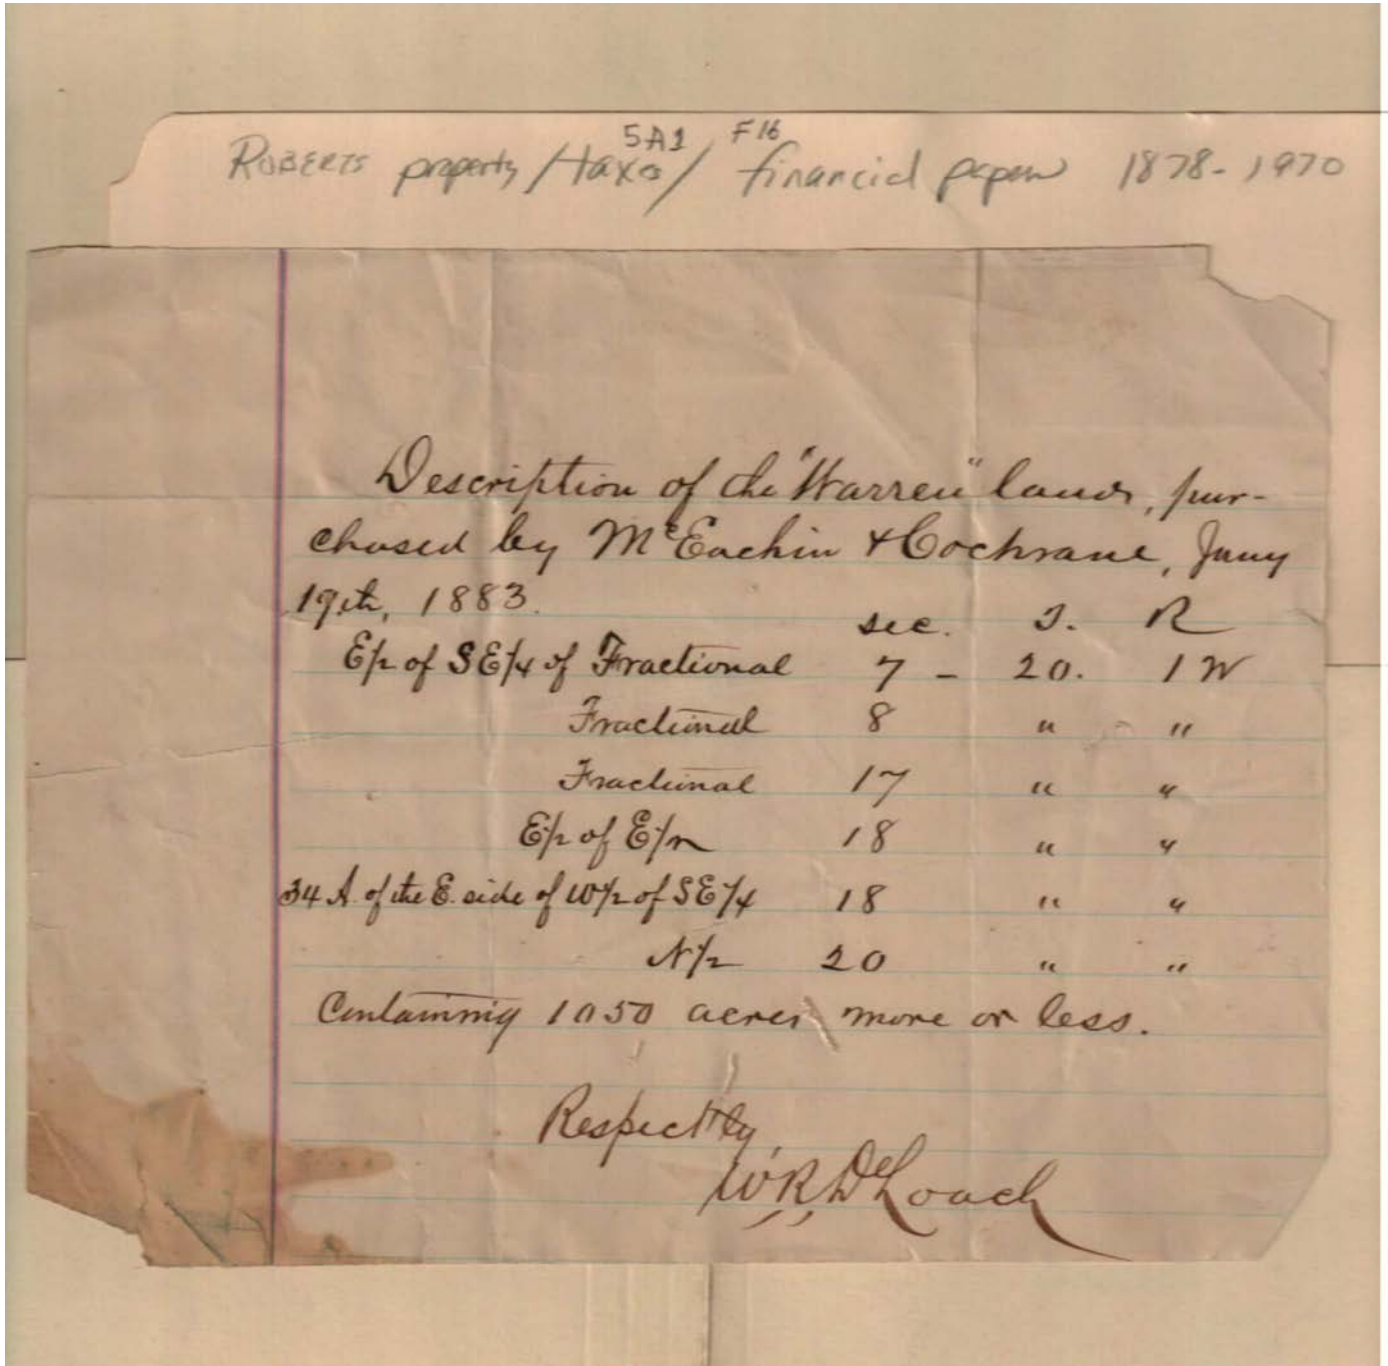 5A1 F16
ROBERTS property / taxes / financial papers 1878-1970
Description of the "Warren" lands, pur-
chased by McEachin & Cochrane, Jany
19th, 1883.
sec. T. R
E/2 of SE/4 of Fractional 7 - 20. 1 W
Fractional 8 " "
Fractional 17 " "
E/2 of E/2 18 " "
34 A. of the E. side of W/2 of SE/4 18 " "
N/2 20 " "
Containing 1050 acres more or less.
Respectfly,
W. R. DeLoach